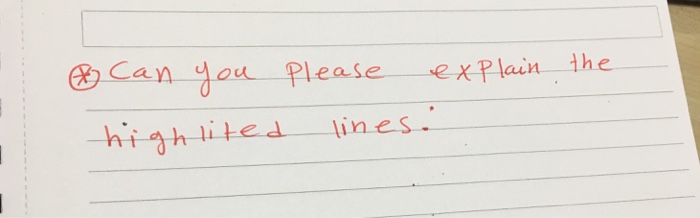 ⊛ Can you please explain the
highlited lines: